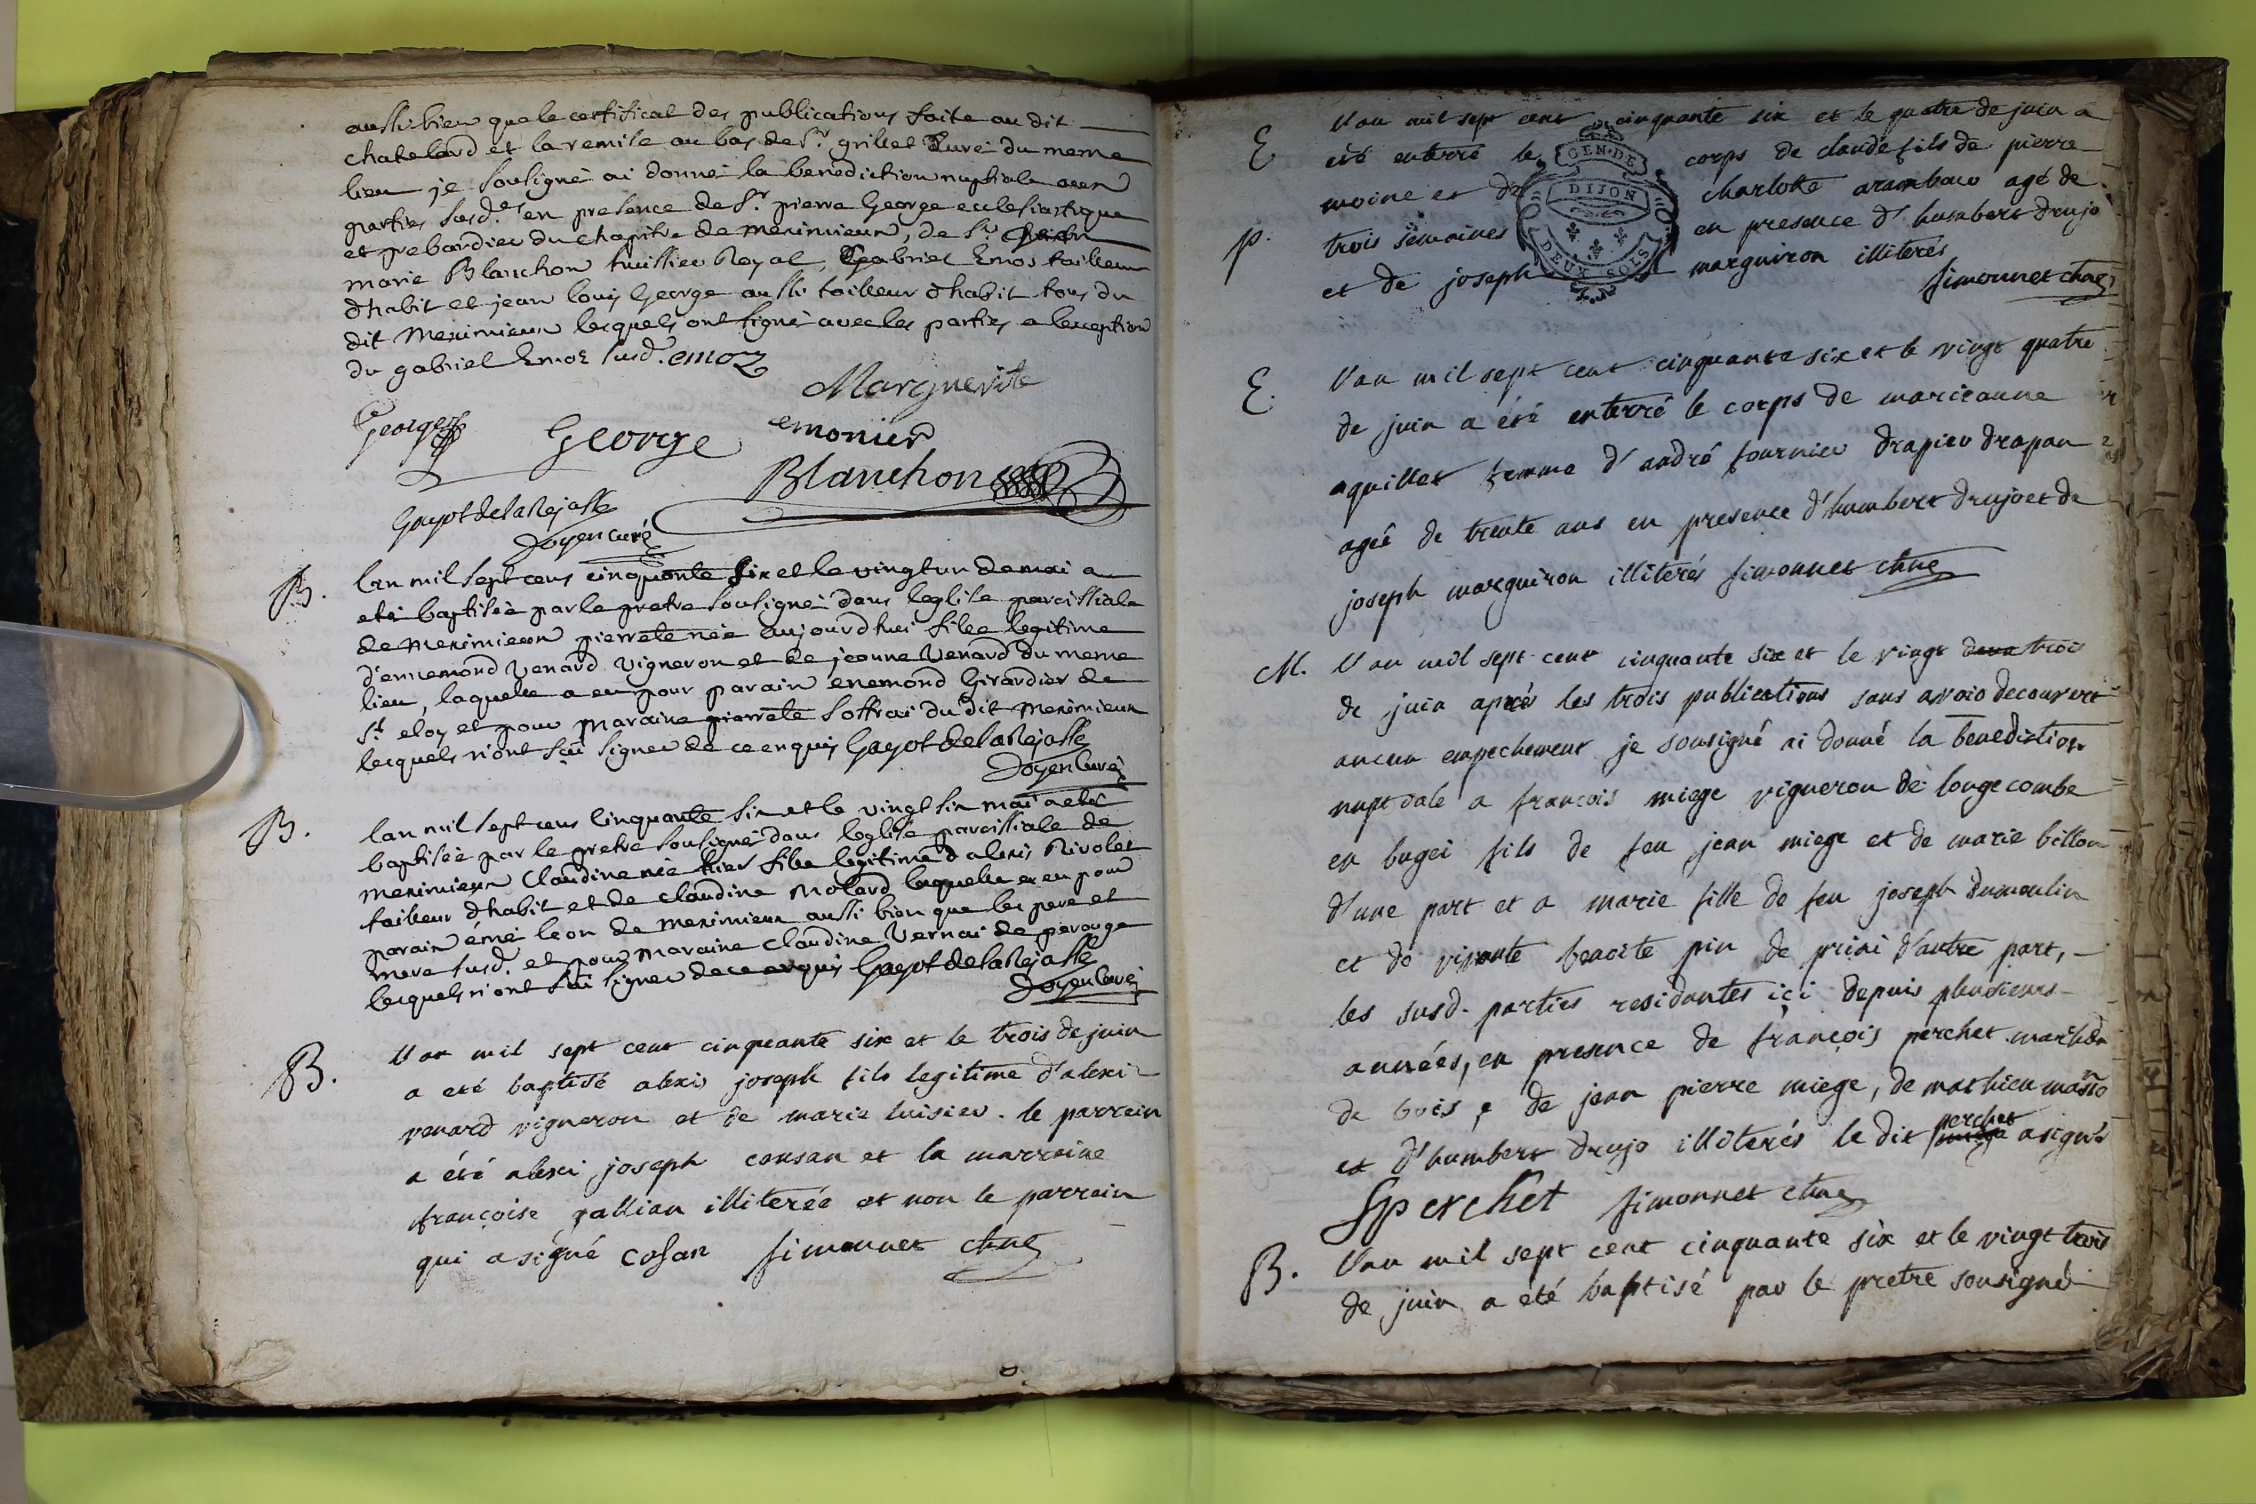 aussi bien que le certificat des publications faite au dit
chatelard et la remise au bas de Sr. grillet Curé du meme
lieu je Sousigné ai donné la benediction nuptiale aux
parties susd.es en presence de Sr. pierre George ecclesiastique
et prebandier du chapitre de meximieux, de Sr.
marie Blanchon huissier Royal, Gabriel Emoz tailleur
d'habit et jean louis George aussi tailleur d'habit tous du
dit Meximieux lesquels ont signé avec les parties a lexception
du gabriel Emoz susd. emoz
Marguerite
George
George
emonier
Blanchon
Gayot de la Rejasse
Doyen Curé
B. lan mil sept cens cinquante six et le vingt un de mai a
eté baptisée par le pretre sousigné dans leglise paroissiale
de meximieux pierrete née aujourdhui fille legitime
d'ennemond Venard vigneron et de jeanne Venard du meme
lieu, laquelle a eu pour parain enemond Girardier de
St. eloy et pour maraine pierrete Soffrai du dit meximieux
lesquels n'ont sçu signer de ce enquis Gayot de la Rejasse
Doyen Curé
B. lan mil sept cens Cinquante six et le vingt six mai a eté
baptisée par le pretre sousigné dans leglise paroissiale de
meximieux Claudine née hier fille legitime d'alexis Rivolet
tailleur d'habit et de claudine Molard laquelle a eu pour
parain émé leon de meximieux aussi bien que les pere et
mere susd. et pour maraine Claudine Vernai de perouge
lesquels n'ont sçu signer de ce enquis Gayot de la Rejasse
Doyen Curé
B. l'an mil sept cent cinquante six et le trois de juin
a eté baptisé alexis joseph fils legitime d'alexi
venard vigneron et de marie luisier. le parrein
a été alexi joseph cousan et la marreine
françoise gallian illiterée et non le parrein
qui a signé cosan simonnet chne
E l'an mil sept cent cinquante six et le quatre de juin a
eté enterré le corps de claude fils de pierre
GEN·DE
DIJON
DEUX SOLS
moine et de charlotte arambour agé de
p. trois semaines en presence d'humbert drujo
et de joseph marguiron illiterés
simonnet chne
E. l'an mil sept cent cinquante six et le vingt quatre
de juin a été enterré le corps de marieanne
aguillet femme d'andré fournier drapier drapan
agée de trente ans en presence d'humbert drujo et de
joseph marguiron illiterés simonnet chne
M. l'an mil sept cent cinquante six et le vingt deux trois
de juin aprés les trois publications sans avoir decouvert
aucun empechement je sousigné ai donné la benediction
nuptiale a françois miege vigneron de longecombe
en bugei fils de feu jean miege et de marie billon
d'une part et a marie fille de feu joseph dumoulin
et de vivante benoite pin de priai d'autre part,
les susd. parties residantes içi depuis plusieurs
années, en presence de françois perchet marchdn
de bois, de jean pierre miege, de mathieu masson
et d'humbert drujo illiterés le dit perchet a signé
perchet simonnet chne
B. l'an mil sept cent cinquante six et le vingt trois
de juin a été baptisé par le pretre sousigné